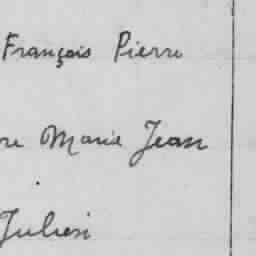 François Pierre
re Marie Jean
Julien